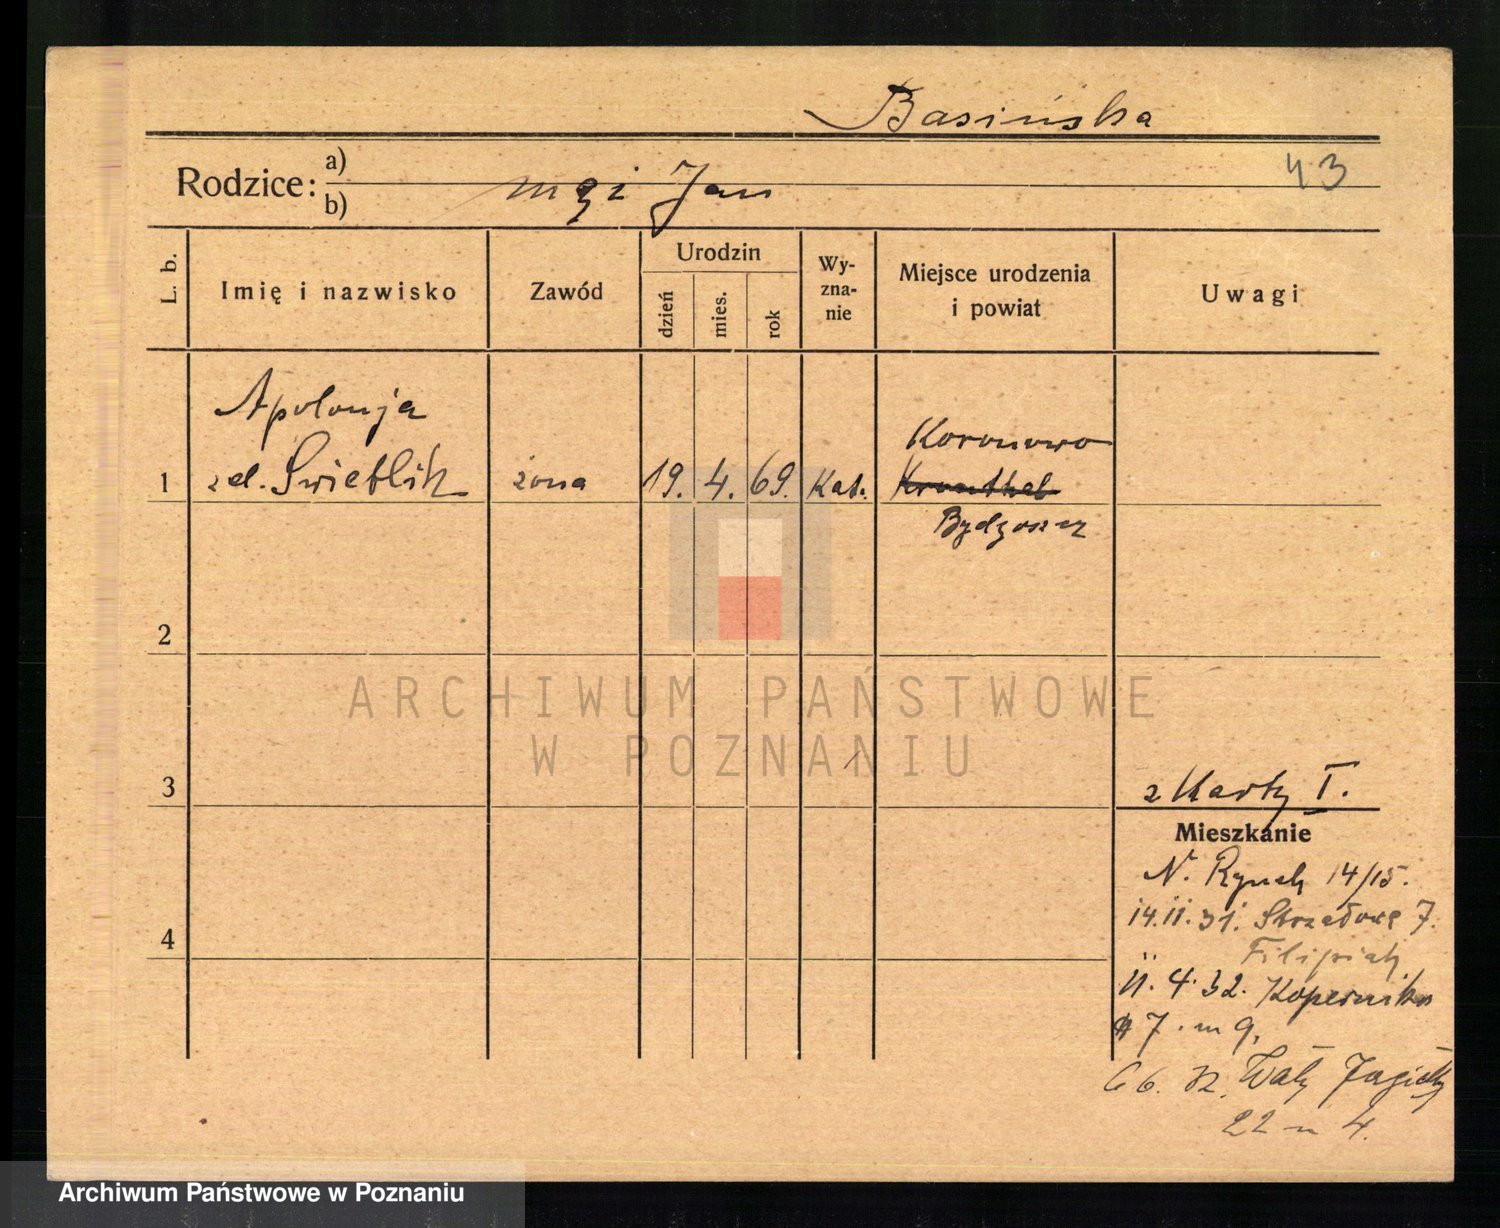 Basińska
43
Rodzice: a)
b)
mąż Jan
L. b.
Imię i nazwisko
Zawód
Urodzin
dzień
mies.
rok
Wy-
zna-
nie
Miejsce urodzenia
i powiat
Uwagi
Apolonja
1 zd. Świetlik żona 19. 4. 69. Kat.
Koronowo
Kronthal
Bydgoszcz
2
3
4
z Karty I.
Mieszkanie
N. Rynek 14/15.
14.11.31. Strzałowa 7.
11.4.32. Kopernika
7. m 9,
6 6. 32. Wały Jagiełły
22 m 4.
ARCHIWUM PAŃSTWOWE
W POZNANIU
Archiwum Państwowe w Poznaniu